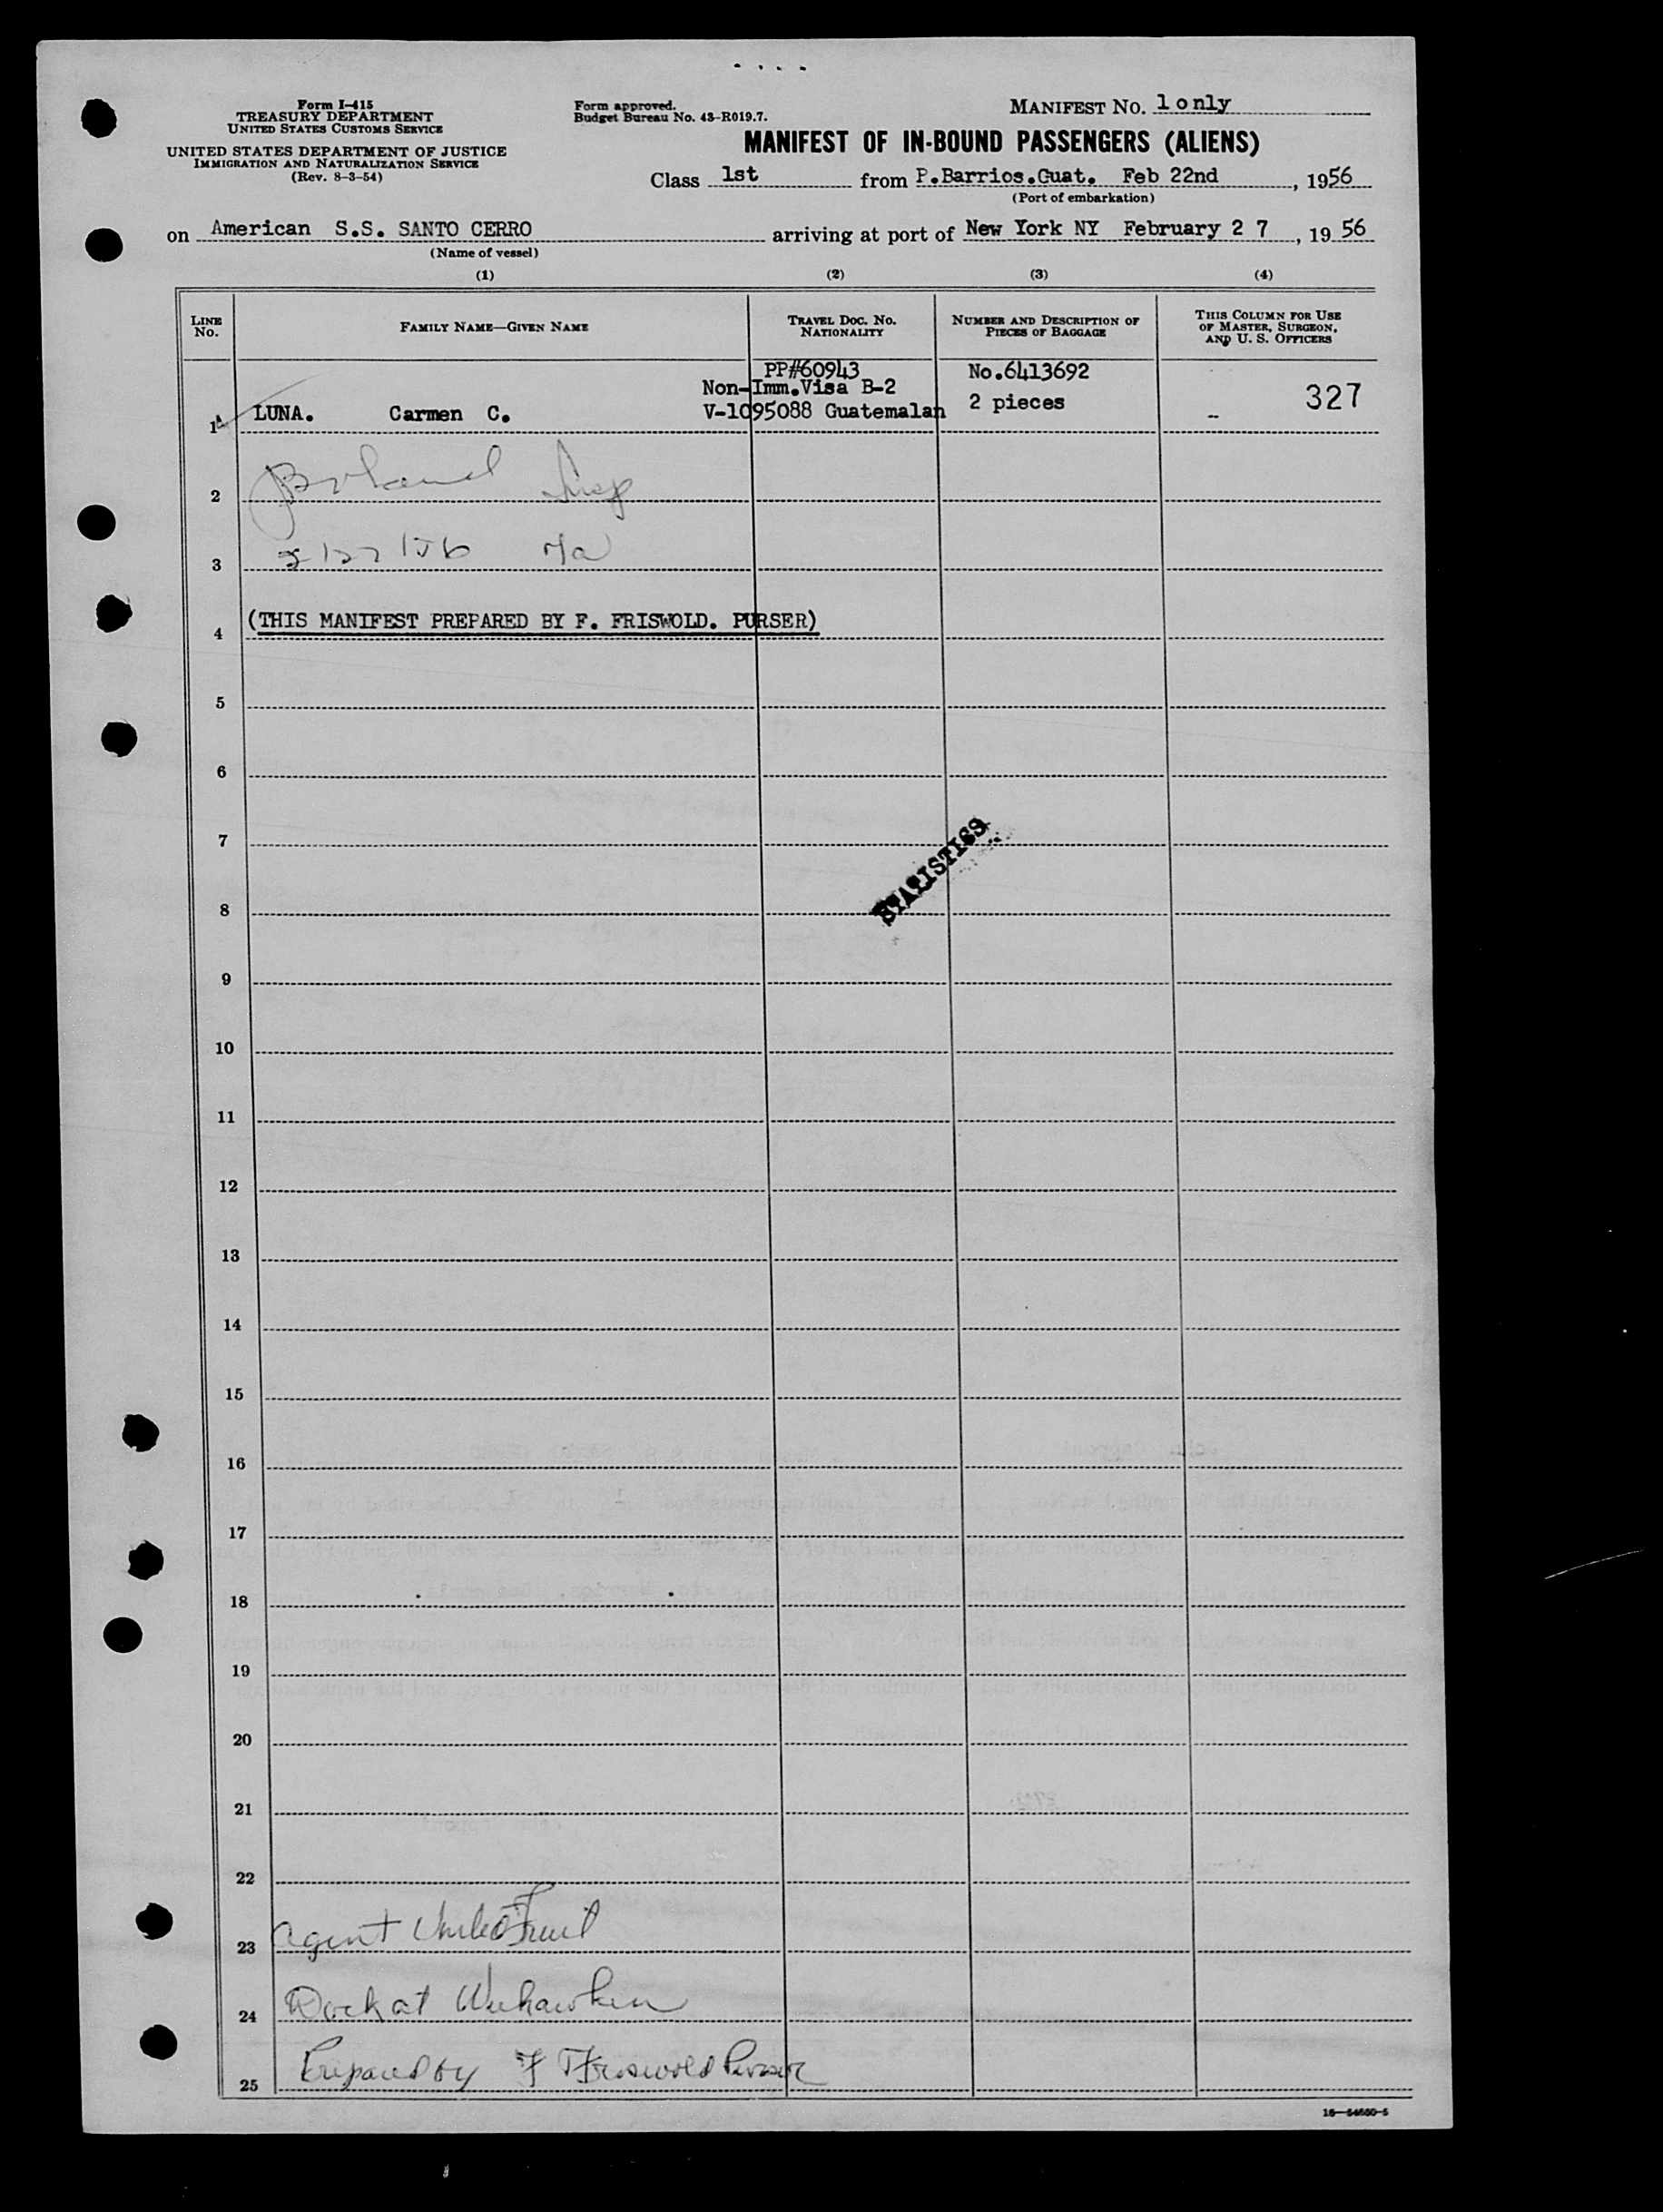 Form I-415
TREASURY DEPARTMENT
UNITED STATES CUSTOMS SERVICE
UNITED STATES DEPARTMENT OF JUSTICE
IMMIGRATION AND NATURALIZATION SERVICE
(Rev. 8-3-54)
Form approved.
Budget Bureau No. 43-R019.7.
MANIFEST NO. 1 only
MANIFEST OF IN-BOUND PASSENGERS (ALIENS)
Class 1st from P.Barrios.Guat. Feb 22nd, 1956
(Port of embarkation)
on American S.S. SANTO CERRO arriving at port of New York NY February 2 7, 19 56
(Name of vessel)
(1) (2) (3) (4)
LINE No.
FAMILY NAME—GIVEN NAME
TRAVEL DOC. NO.
NATIONALITY
NUMBER AND DESCRIPTION OF
PIECES OF BAGGAGE
THIS COLUMN FOR USE
OF MASTER, SURGEON,
AND U. S. OFFICERS
PP#60943 No.6413692
Non-Imm.Visa B-2
1 LUNA. Carmen C. V-1095088 Guatemalan 2 pieces - 327
2 Insp
3 2/27/56
4 (THIS MANIFEST PREPARED BY F. FRISWOLD. PURSER)
5
6
7
STATISTICS
8
9
10
11
12
13
14
15
16
17
18
19
20
21
22
23 Agent United Fruit
24 Dock at Weehawken
25 Prepared by F Friswold Purser